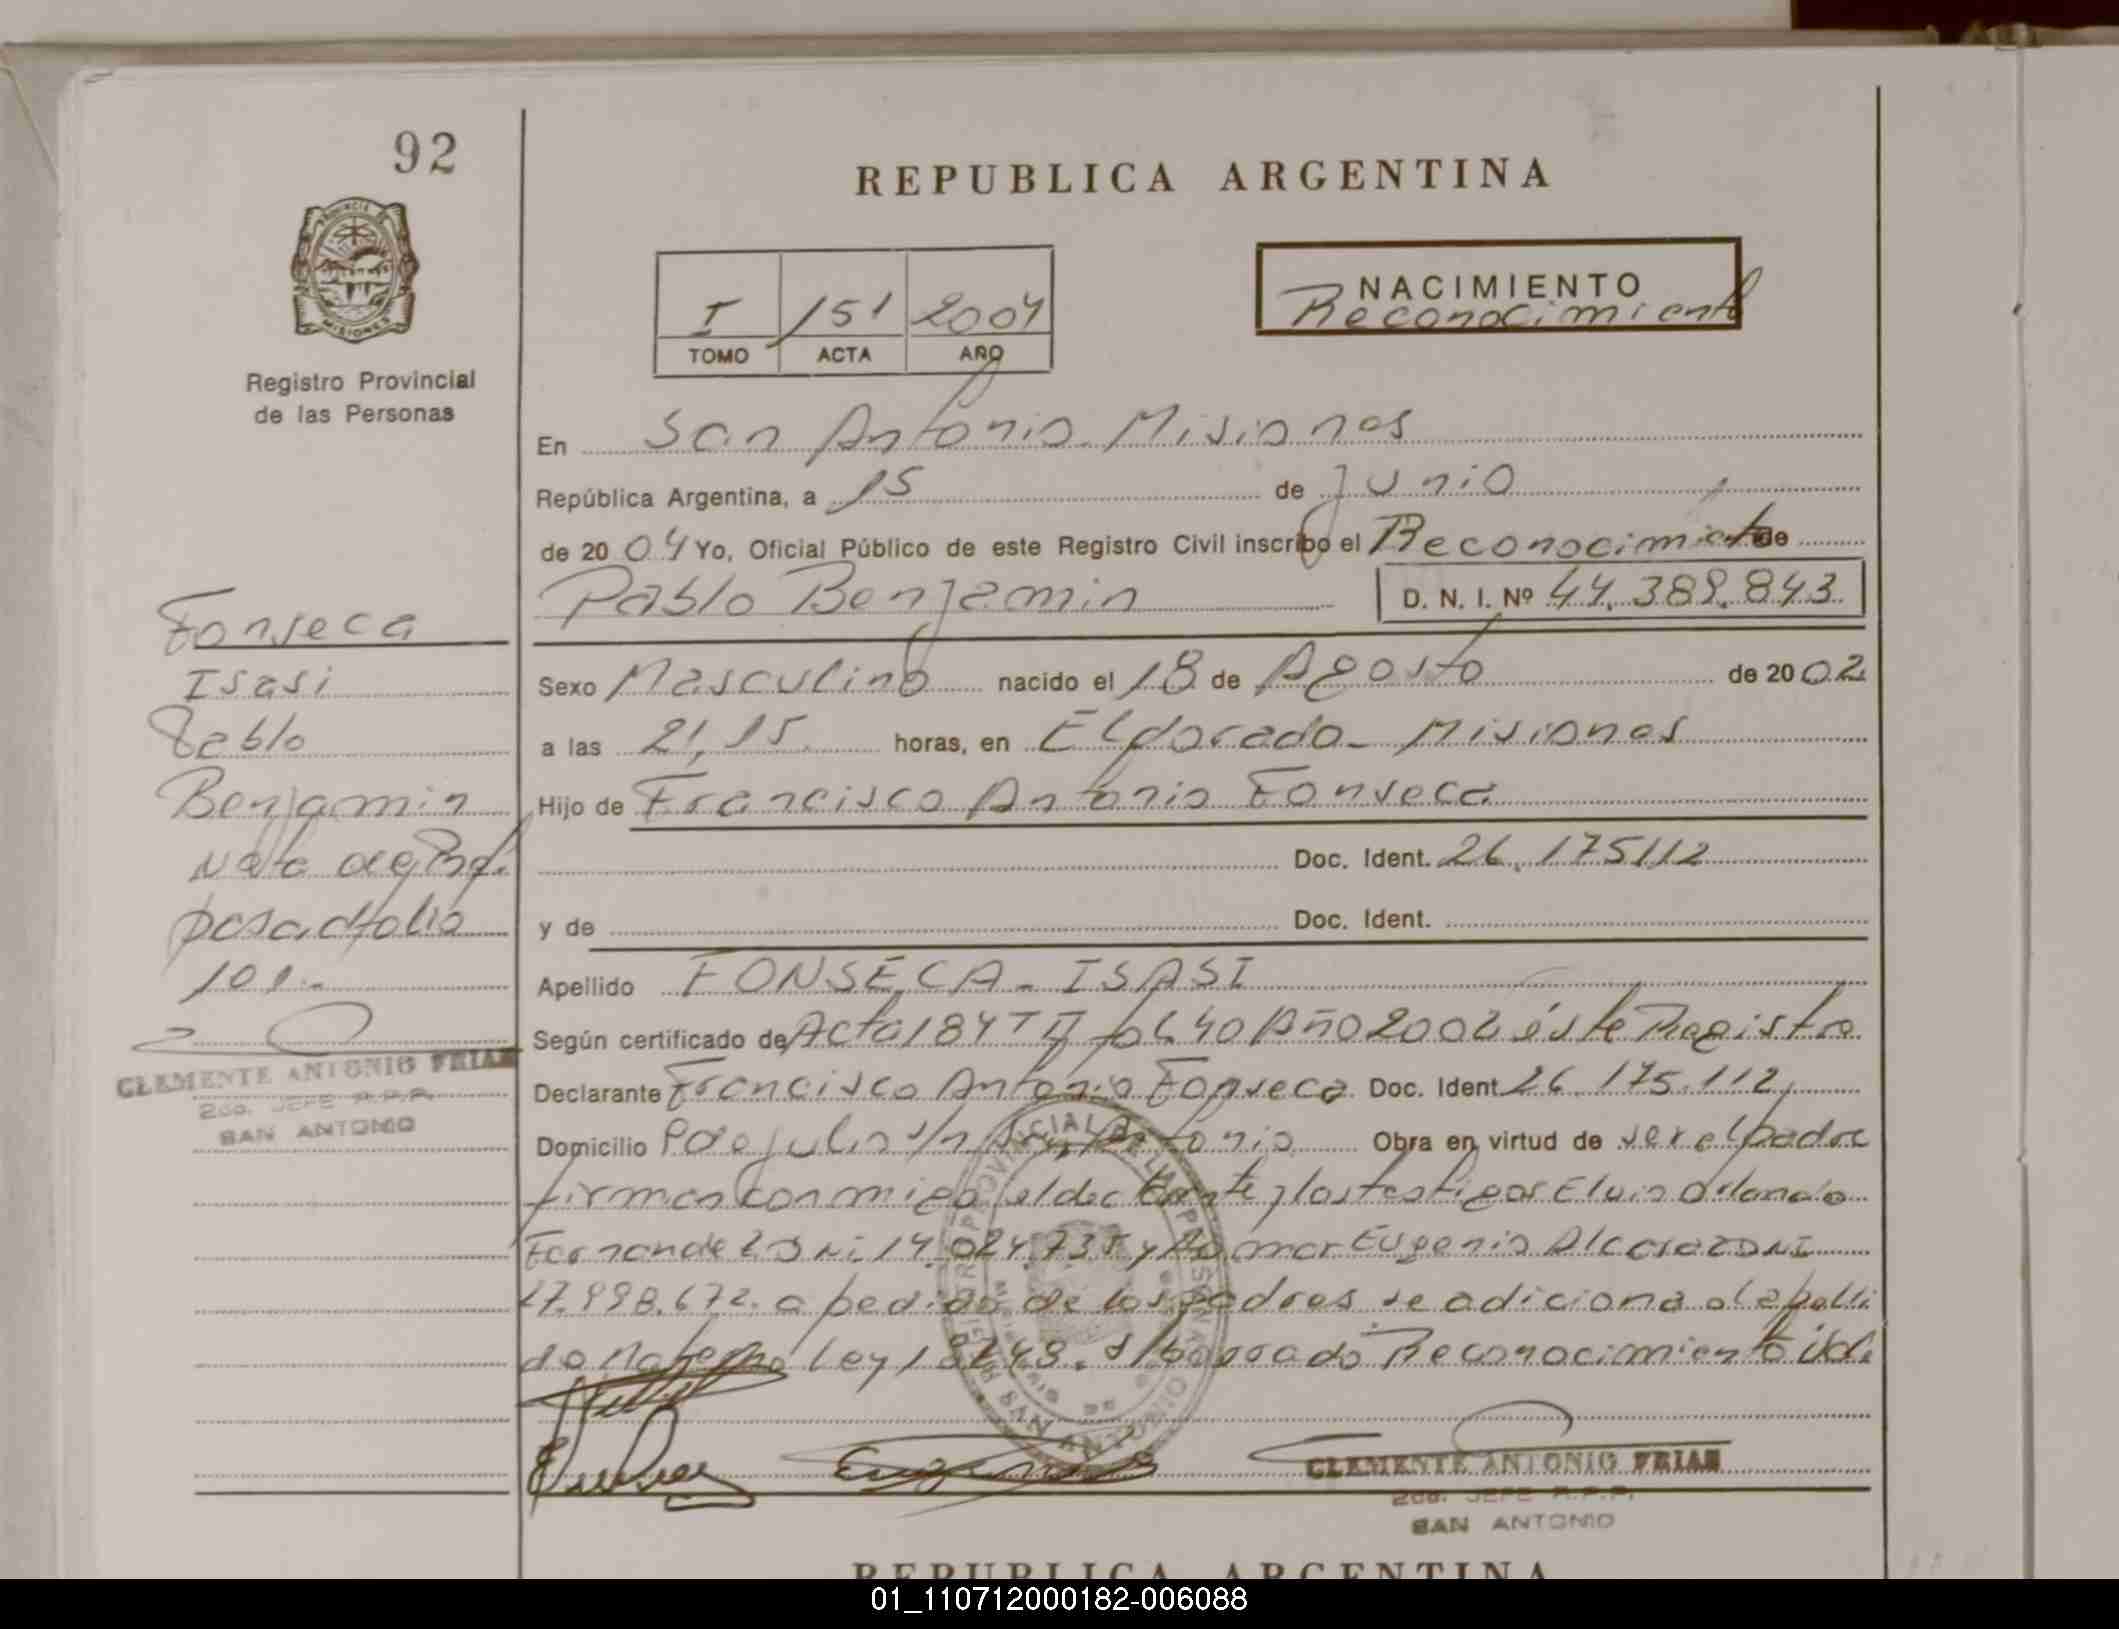 92
REPUBLICA ARGENTINA
PROVINCIA DE
MISIONES
Registro Provincial
de las Personas
I 151 2004
TOMO ACTA AÑO
NACIMIENTO
Reconocimiento
En San Antonio Misiones
República Argentina, a 15 de Junio
de 2004 Yo, Oficial Público de este Registro Civil inscribo el Reconocimiento de
Pablo Benjamin D. N. I. Nº 44.389.843
Sexo Masculino nacido el 18 de Agosto de 2002
a las 21,15 horas, en Eldorado - Misiones
Hijo de Francisco Antonio Fonseca
Doc. Ident. 26.175112
y de Doc. Ident.
Apellido FONSECA - ISASI
Según certificado de Acta 184 T II fo 40 Año 2002 éste Registro
Declarante Francisco Antonio Fonseca Doc. Ident 26.175.112
Domicilio Pde julio s/n San Antonio Obra en virtud de ser el padre
firman conmigo el declarante y los testigos Elvio Orlando
Fernandez DNI 14.024.735 y Aomar Eugenio DNI
17.998.672. a pedido de los padres se adiciona el apelli
do Materno ley 18248. s/borrado Reconocimiento
Fonseca
Isasi
Pablo
Benjamin
Nota de Ref.
pasa al folio
101.-
CLEMENTE ANTONIO FRIAS
2do. JEFE R.P.P.
SAN ANTONIO
REGISTRO PROVINCIAL DE LAS PERSONAS
SAN ANTONIO
CLEMENTE ANTONIO FRIAS
2do. JEFE R.P.P.
SAN ANTONIO
REPUBLICA ARGENTINA
01_110712000182-006088